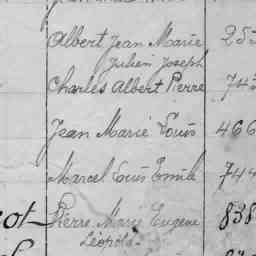 Albert Jean Marie 253
Julien Joseph
Charles Albert Pierre 743
Jean Marie Louis 466
Marcel Louis Emile 744
Pierre Marie Eugene 838
Léopold